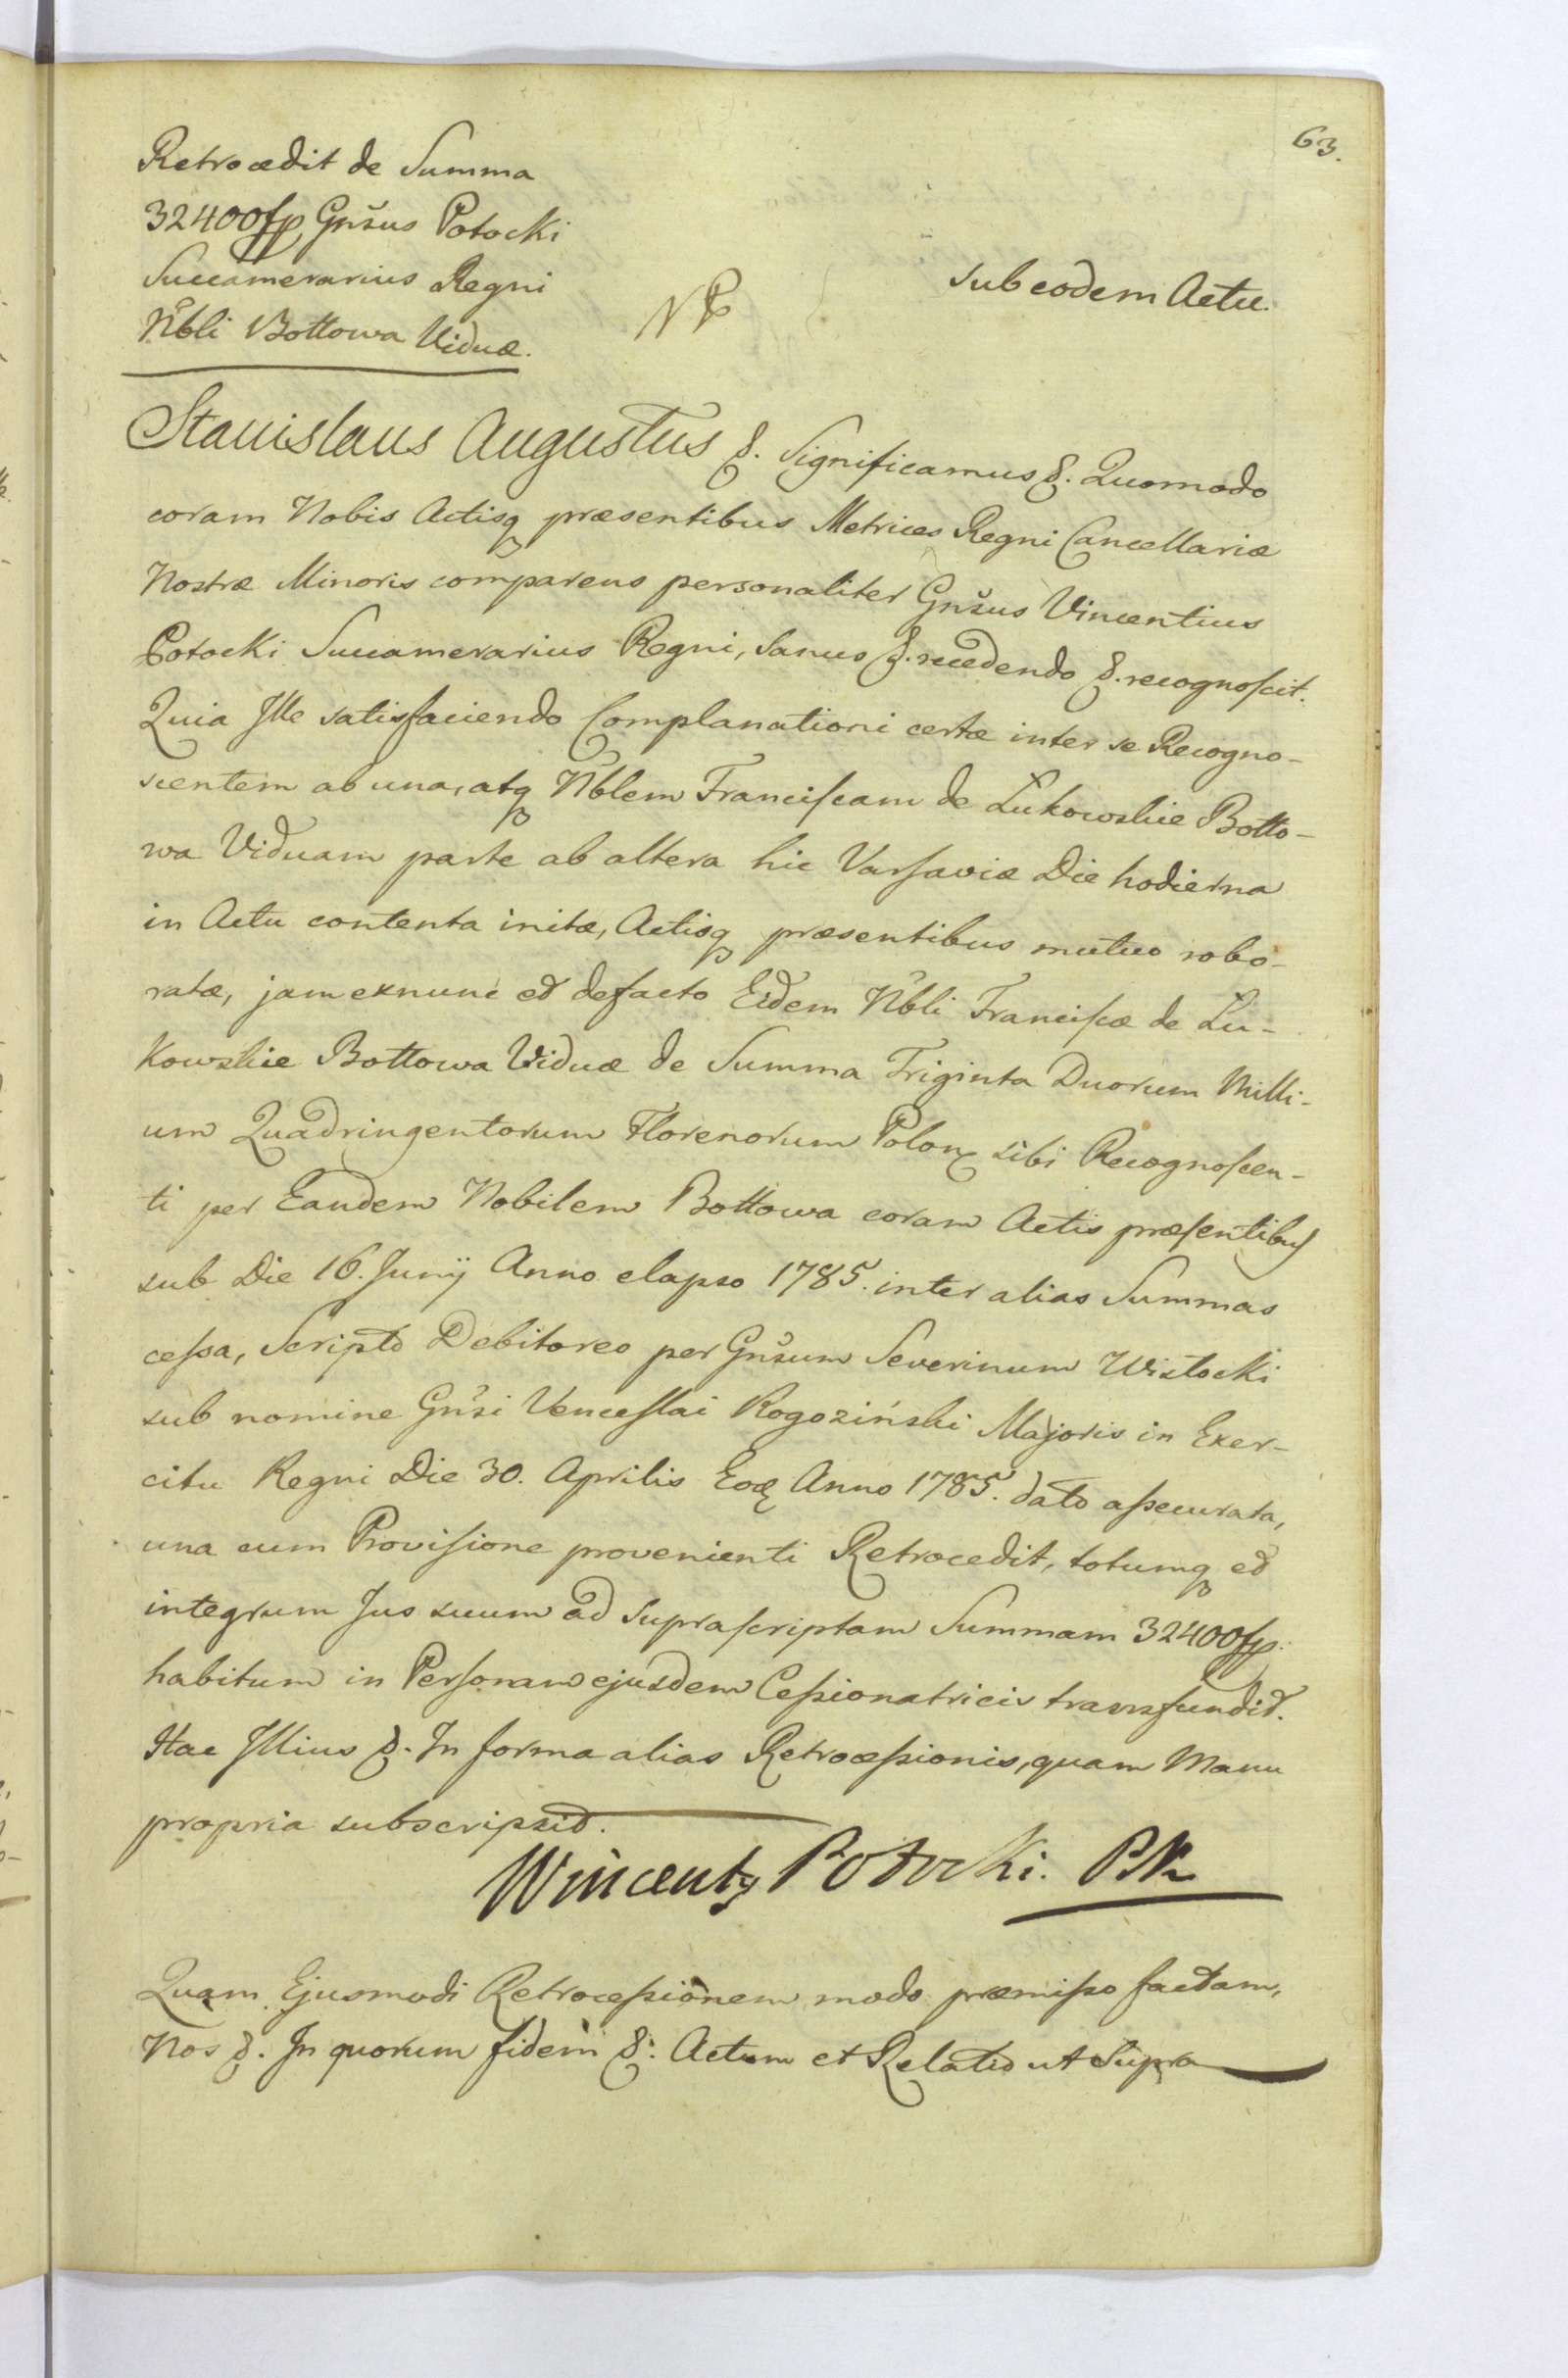 63.
Retrocedit de Summa
32400 fp. Gnsus Potocki
Succamerarius Regni
Nbli Bottowa Viduæ.
NP
sub eodem Actu.
Stanislaus Augustus &. Significamus &. Quomodo
coram Nobis Actisq præsentibus Metrices Regni Cancellariæ
Nostræ Minoris comparens personaliter Gnsus Vincentius
Potocki Succamerarius Regni, Sanus &. recedendo &. recognoscit.
Quia Ille satisfaciendo Complanationi certæ inter se Recogno-
scentem ab una, atq Nblem Franciscam de Lukowskie Botto-
wa Viduam parte ab altera hic Varsaviæ Die hodierna
in Actu contenta initæ, Actisq præsentibus mutuo robo-
ratæ, jam exnunc et defacto Eidem Nbli Franciscæ de Lu-
kowskie Bottowa Viduæ de Summa Triginta Duorum Milli-
um Quadringentorum Florenorum Polon sibi Recognoscen-
ti per Eandem Nobilem Bottowa coram Actis præsentibus
sub Die 16. Junij Anno elapso 1785. inter alias Summas
cessa, Scripto Debitoreo per Gnsum Severinum Wistocki
sub nomine Gnsi Venceslai Rogoziński Majoris in Exer-
citu Regni Die 30. Aprilis Eod Anno 1785. dato assecurata,
una cum Provisione provenienti Retrocedit, totumq et
integrum Jus suum ad suprascriptam Summam 32400 fp.
habitum in Personam ejusdem Cessionatricis transfundit.
Hac Illius &. In forma alias Retrocessionis, quam Manu
propria subscripsit.
Wincenty Potocki. PK
Quam Ejusmodi Retrocessionem modo præmisso factam,
Nos &. In quorum fidem &. Actum et Relatio ut Supra